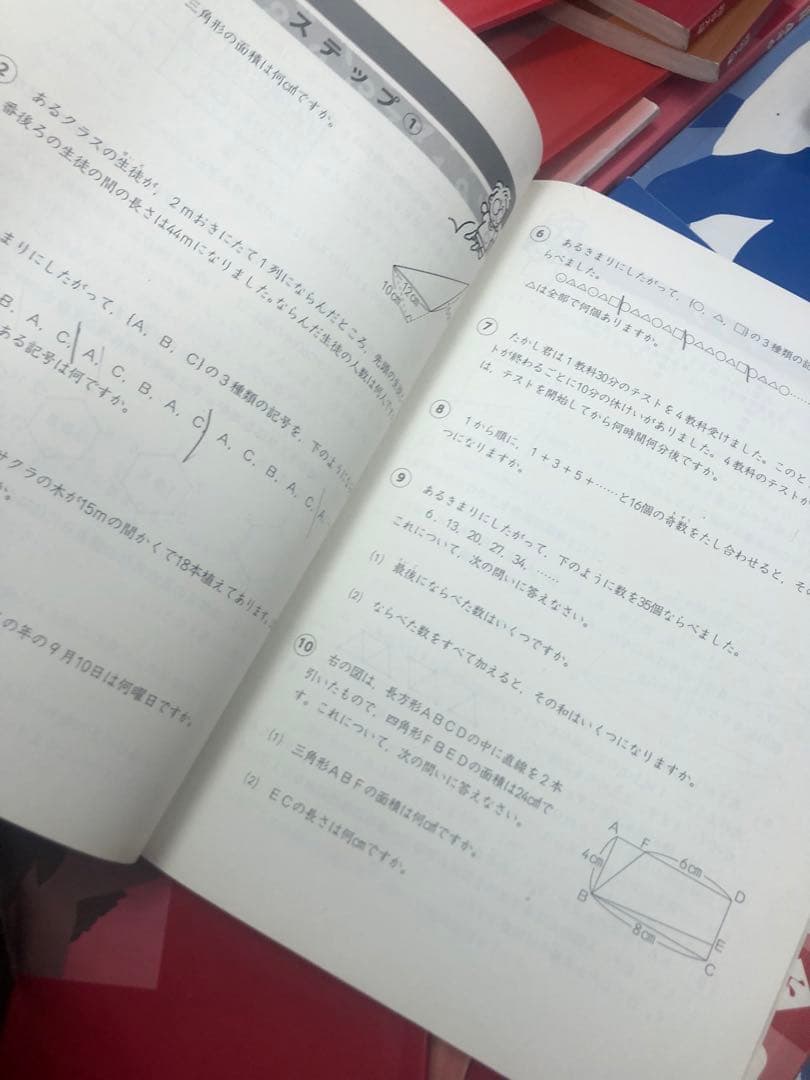 三角形の面積は何cm²ですか。
ステップ①
12cm
10cm
② あるクラスの生徒が，2mおきにたて1列にならんだところ，先頭の
番後ろの生徒の間の長さは44mになりました。ならんだ生徒の人数は何人です
まりにしたがって，{A, B, C}の3種類の記号を，下のように
B, A, C, A, C, B, A, C, A, C, B, A, C, A,
ある記号は何ですか。
サクラの木が15mの間かくで18本植えてあります。
か。
の年の9月10日は何曜日ですか。
⑥ あるきまりにしたがって，{○, △, □}の3種類の記
らべました。
○△△○△□○△△○△□○△△○△□○△△○……
△は全部で何個ありますか。
⑦ たかし君は1教科30分のテストを4教科受けました。このと
トが終わるごとに10分の休けいがありました。4教科のテストが
は，テストを開始してから何時間何分後ですか。
⑧ 1から順に，1＋3＋5＋……と16個の奇数をたし合わせると，その
つになりますか。
⑨ あるきまりにしたがって，下のように数を35個ならべました。
6, 13, 20, 27, 34, ……
これについて，次の問いに答えなさい。
(1) 最後にならべた数はいくつですか。
(2) ならべた数をすべて加えると，その和はいくつになりますか。
⑩ 右の図は，長方形ABCDの中に直線を2本
引いたもので，四角形FBEDの面積は24cm²で
す。これについて，次の問いに答えなさい。
(1) 三角形ABFの面積は何cm²ですか。
(2) ECの長さは何cmですか。
A
F
6cm
D
4cm
B
8cm
E
C